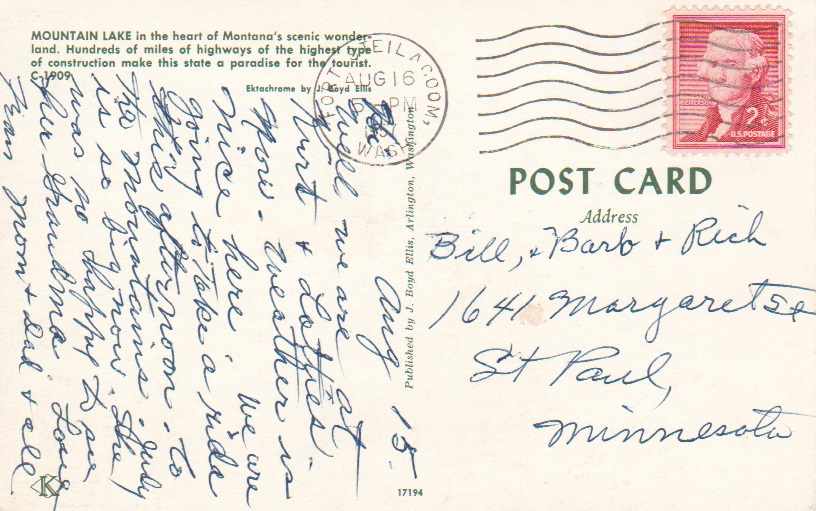 MOUNTAIN LAKE in the heart of Montana's scenic wonder-
land. Hundreds of miles of highways of the highest type
of construction make this state a paradise for the tourist.
C-1909
Ektachrome by J. Boyd Ellis
FORT STEILACOOM,
AUG 16
PM
WASH
2¢
U.S. POSTAGE
POST CARD
Address
Bill, + Barb + Rich
1641 Margaret St
St Paul,
Minnesota
Published by J. Boyd Ellis, Arlington, Washington
Aug 15
Well we are at
Kurt + Lotties
now. Weather is
nice here. We are
going to take a ride
this afternoon to
the mountains. Judy
is so big now. She
was so happy to see
her Grandma. Love
from Mom + Dad + all
K
17194